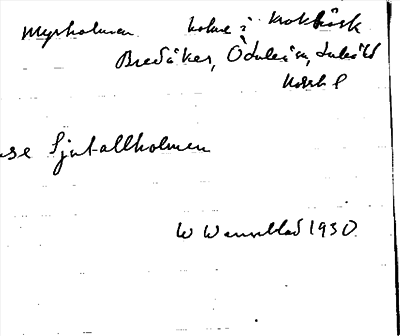 Myrholmen holme i Krokträsk
Bredåker, Överluleå sn, Luleåld
Norrb l
se Sjutallholmen
W Wennblad 1930